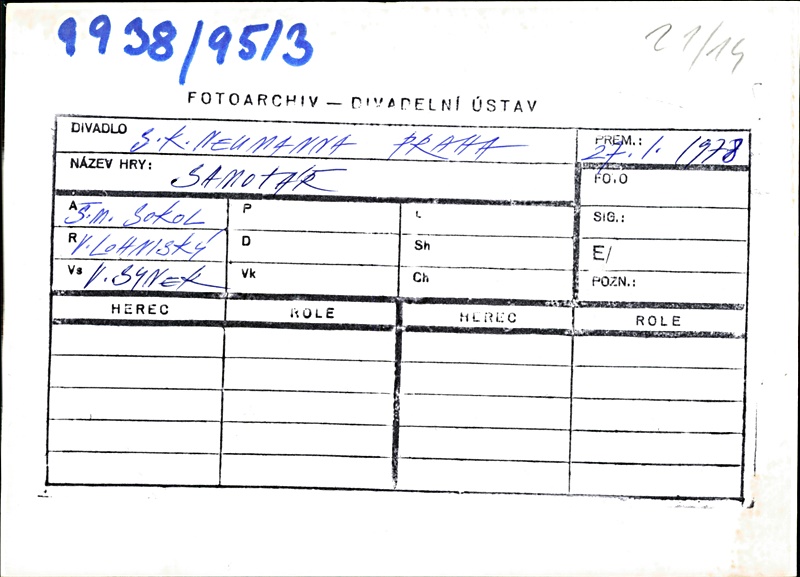 9938/95/3
21/14
FOTOARCHIV — DIVADELNÍ ÚSTAV
DIVADLO S.K. NEUMANNA PRAHA
PREM.: 27.1. 1978
NÁZEV HRY: SAMOTÁŘ
FOTO
A S.M. SOKOL P L
SIG.:
R V. LOHNISKÝ D Sh
E/
Vs V. SYNEK Vk Ch
POZN.:
HEREC ROLE HEREC ROLE